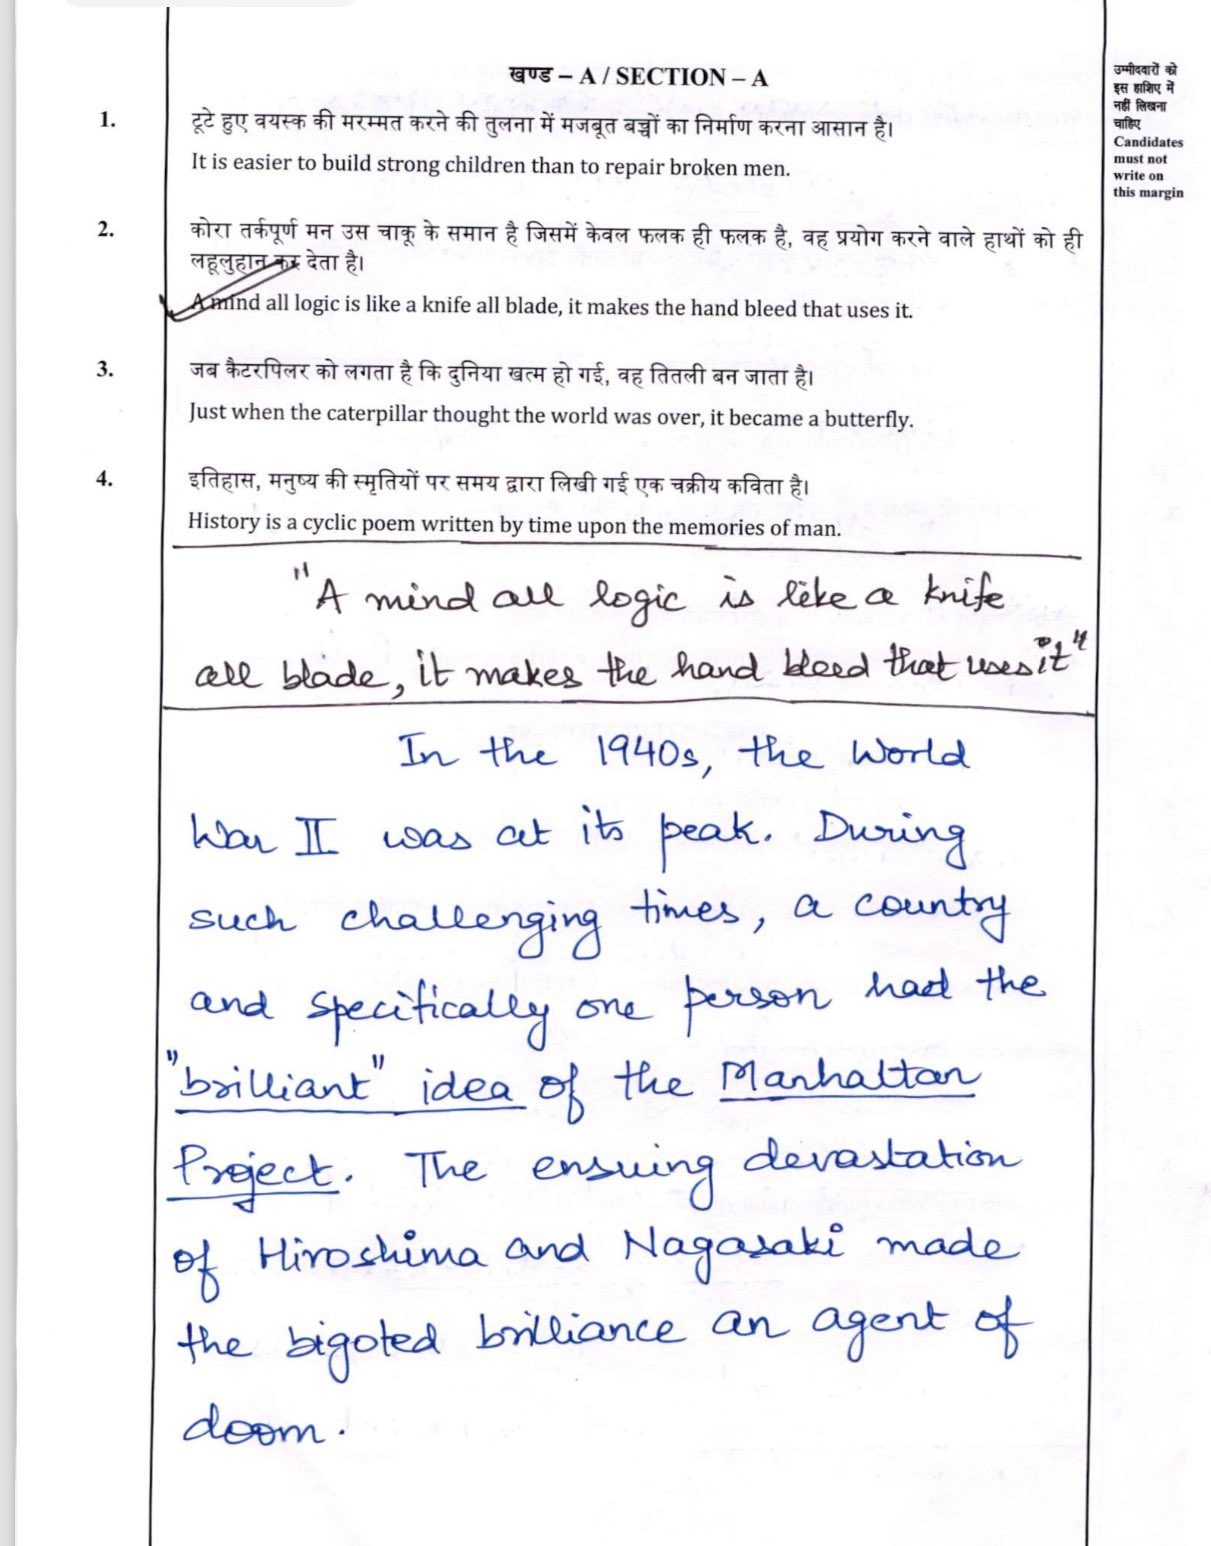 खण्ड – A / SECTION – A
उम्मीदवारों को
इस हाशिए में
नहीं लिखना
चाहिए
Candidates
must not
write on
this margin
1. टूटे हुए वयस्क की मरम्मत करने की तुलना में मजबूत बच्चों का निर्माण करना आसान है।
It is easier to build strong children than to repair broken men.
2. कोरा तर्कपूर्ण मन उस चाकू के समान है जिसमें केवल फलक ही फलक है, वह प्रयोग करने वाले हाथों को ही
लहूलुहान कर देता है।
A mind all logic is like a knife all blade, it makes the hand bleed that uses it.
3. जब कैटरपिलर को लगता है कि दुनिया खत्म हो गई, वह तितली बन जाता है।
Just when the caterpillar thought the world was over, it became a butterfly.
4. इतिहास, मनुष्य की स्मृतियों पर समय द्वारा लिखी गई एक चक्रीय कविता है।
History is a cyclic poem written by time upon the memories of man.
"A mind all logic is like a knife
all blade, it makes the hand bleed that uses it"
In the 1940s, the World
War II was at its peak. During
such challenging times, a country
and specifically one person had the
"brilliant" idea of the Manhattan
Project. The ensuing devastation
of Hiroshima and Nagasaki made
the bigoted brilliance an agent of
doom.